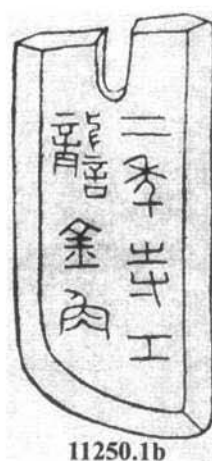 二年寺工
讋金角
11250.1b